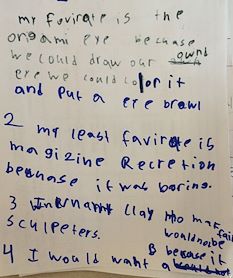 my favirate is the
origami eye because
we could draw our ownd
eye we could color it
and put a eye brawl
2 my least favirate is
magizine Recretion
because it was boring.
3 clay
sculpeters.
4 I would want a
because it